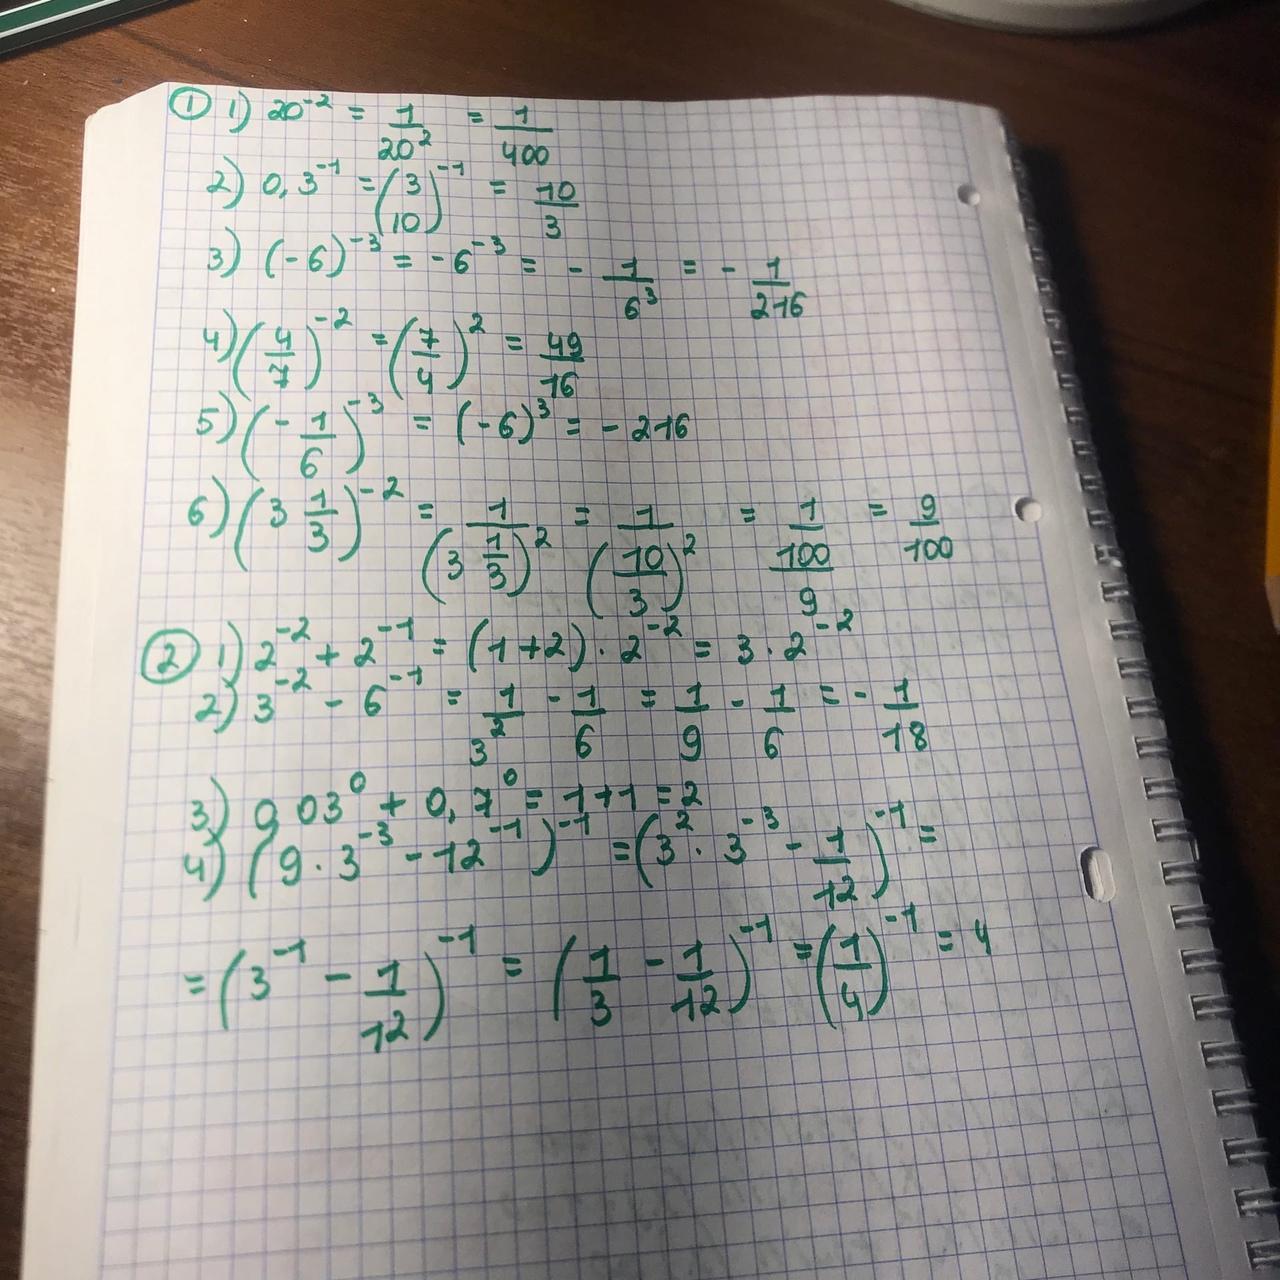 ① 1) 20⁻² = 1/20² = 1/400
2) 0,3⁻¹ = (3/10)⁻¹ = 10/3
3) (-6)⁻³ = -6⁻³ = - 1/6³ = - 1/216
4) (4/7)⁻² = (7/4)² = 49/16
5) (- 1/6)⁻³ = (-6)³ = - 216
6) (3 1/3)⁻² = 1/(3 1/3)² = 1/(10/3)² = 1/(100/9) = 9/100
② 1) 2⁻² + 2⁻¹ = (1+2) · 2⁻² = 3 · 2⁻²
2) 3⁻² - 6⁻¹ = 1/3² - 1/6 = 1/9 - 1/6 = - 1/18
3) 0,03⁰ + 0,7⁰ = 1+1 = 2
4) (9 · 3⁻³ - 12⁻¹)⁻¹ = (3² · 3⁻³ - 1/12)⁻¹ =
= (3⁻¹ - 1/12)⁻¹ = (1/3 - 1/12)⁻¹ = (1/4)⁻¹ = 4